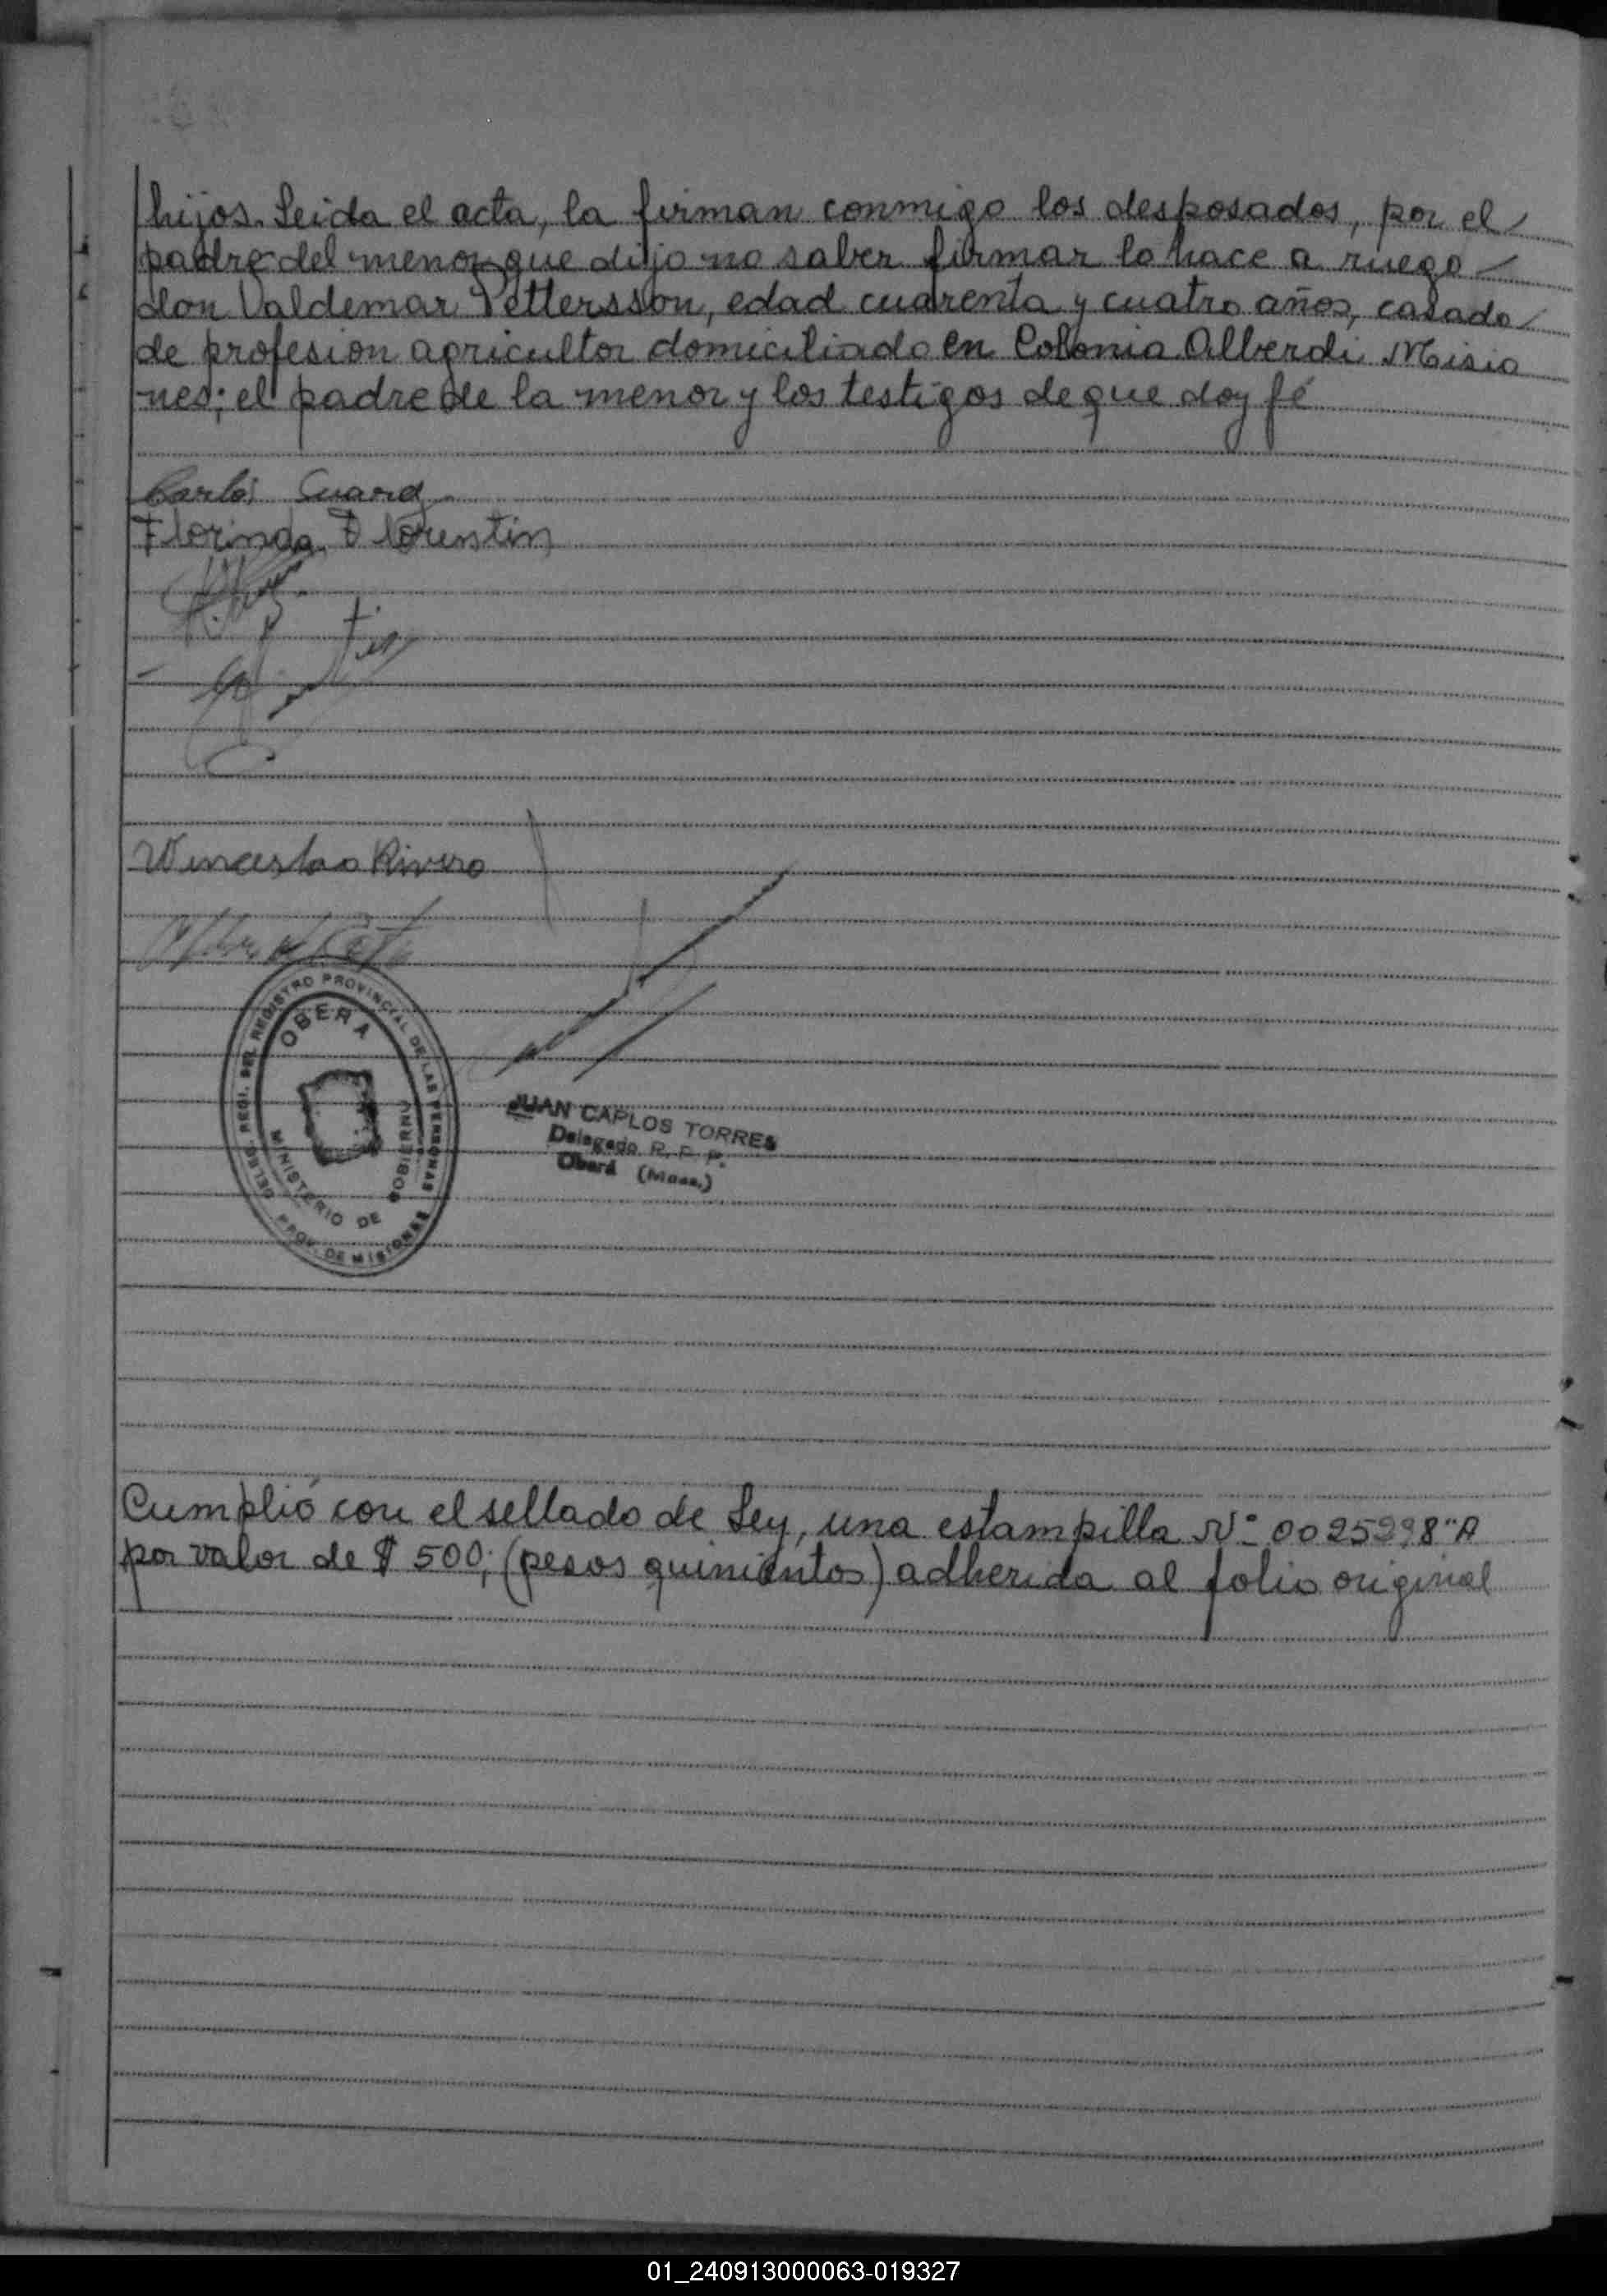 hijos. Leida el acta, la firman conmigo los desposados, por el
padre del menor que dijo no saber firmar lo hace a ruego
don Valdemar Pettersson, edad cuarenta y cuatro años, casado
de profesion agricultor domiciliado en Colonia Alberdi Misio
nes; el padre de la menor y los testigos de que doy fé
Carlos
Florinda Florentin
Wenceslao Rivero
DELEG. REGI. DEL REGISTRO PROVINCIAL DE LAS PERSONAS
OBERA
MINISTERIO DE GOBIERNO
PROV. DE MISIONES
JUAN CARLOS TORRES
Delegado R. P. P.
Oberá (Mnes.)
Cumplió con el sellado de Ley, una estampilla Nº 0025298 "A
por valor de $ 500; (pesos quinientos) adherida al folio original
01_240913000063-019327